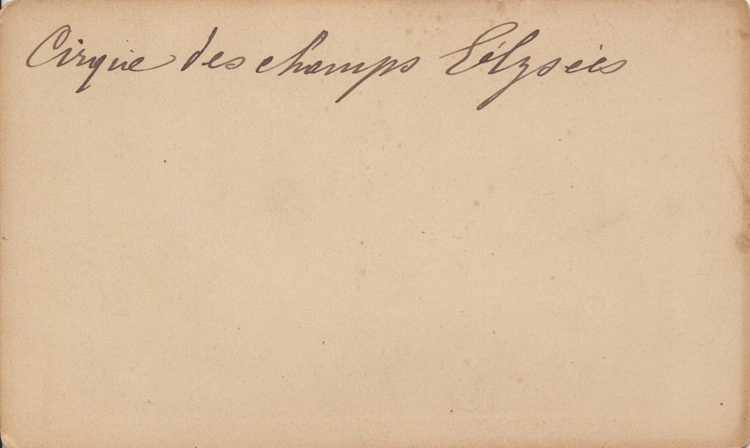 Cirque des champs Élysées